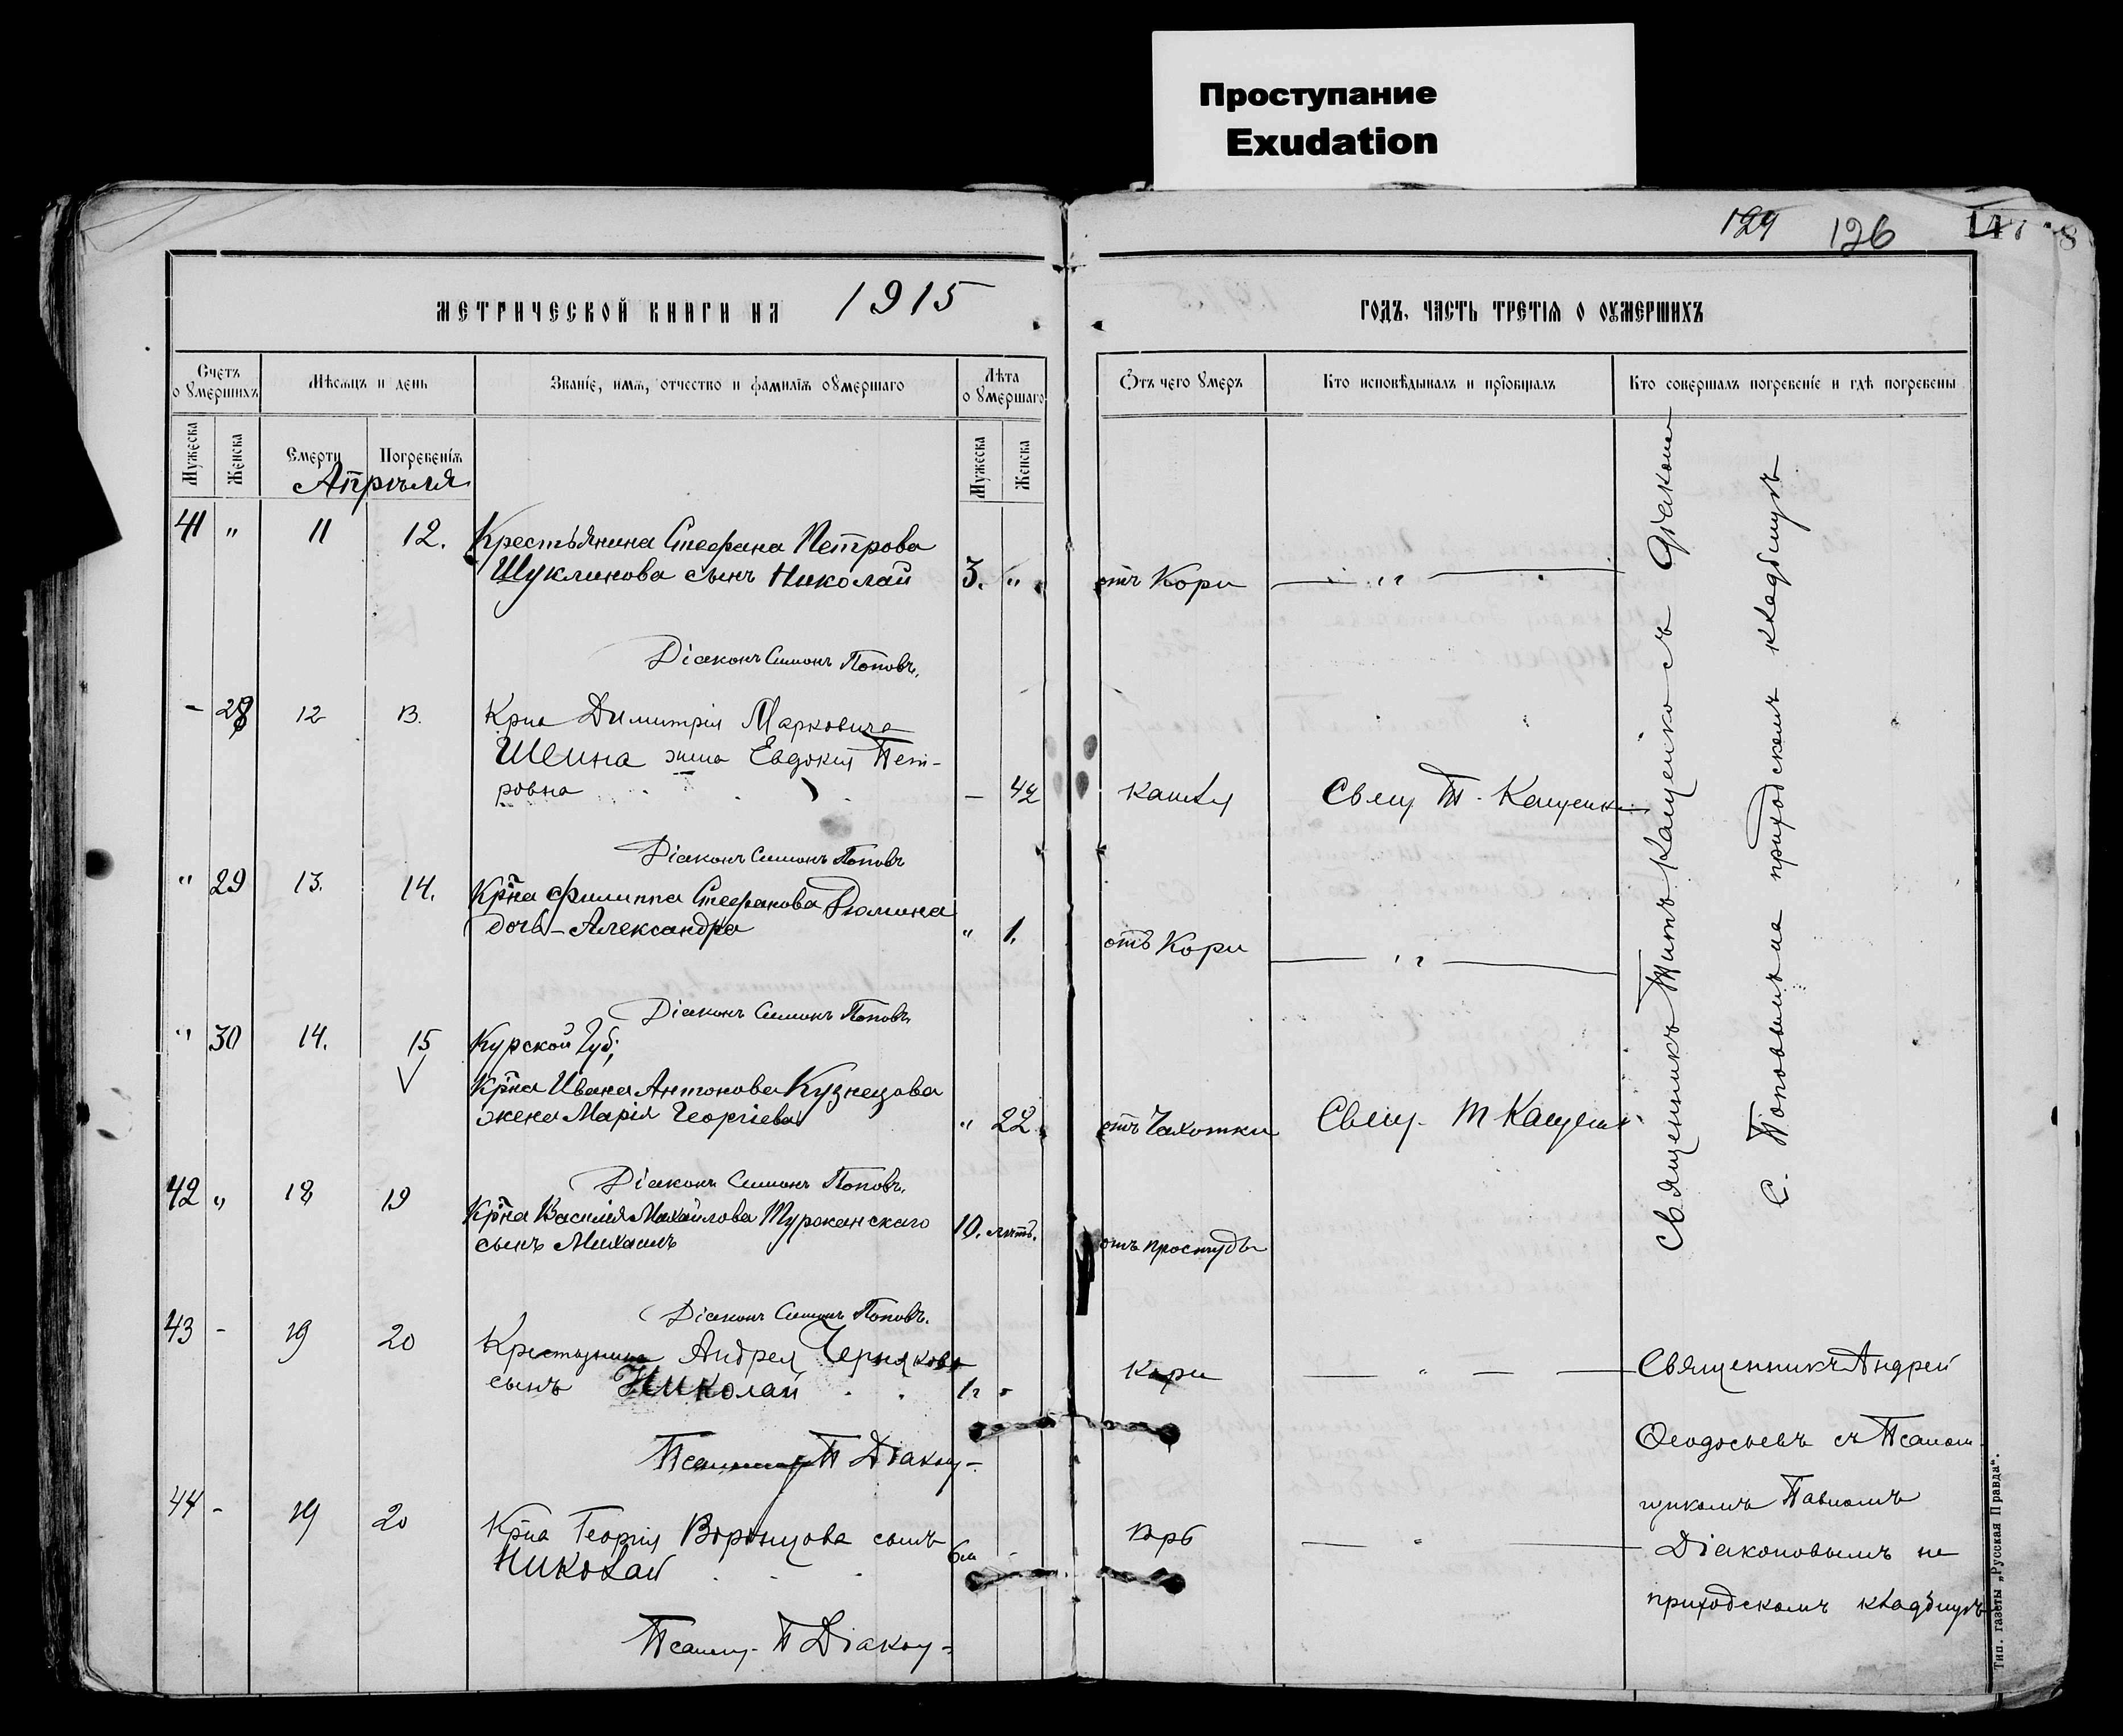 Проступание
Exudation
124 126 147
МЕТРИЧЕСКОЙ КНИГИ НА 1915
ГОДЪ, ЧАСТЬ ТРЕТІѦ О ОУМЕРШИХЪ
Счетъ о ꙋмершихъ
Мѣсяцъ и день
Званіе, имѧ, отчество и фамиліѧ оꙋмершаго
Лѣта оꙋмершаго
Ѿтъ чего ꙋмеръ
Кто исповѣдывалъ и прїобщалъ
Кто совершалъ погребеніе и гдѣ погребены
Мужеска
Женска
Смерти
Погребеніѧ
Мужеска
Женска
Апрѣля
41 " 11 12. Крестьянина Стефана Петрова
Шуклинова сынъ Николай 3. " отъ Кори "
Діаконъ Симонъ Поповъ.
- 28 12 13. Крна Димитрія Марковича
Шеина жена Евдокія Пет-
ровна - 42 кашля Свящ Т. Кащенко
Діаконъ Симонъ Поповъ
" 29 13. 14. Кр̃на Филиппа Стефанова Рюмина
дочь - Александра " 1. отъ Кори "
Діаконъ Симонъ Поповъ
" 30 14. 15 Курской Губ;
Кр̃на Ивана Антонова Кузнецова
жена Марія Георгіева " 22. отъ Чахотки Свящ. Т Кащенк
Діаконъ Симонъ Поповъ.
42 " 18 19 Кр̃на Василія Михайлова Туроканскаго
сынъ Михаилъ 10. лѣтъ. отъ простуды
Діаконъ Симонъ Поповъ.
43 - 19 20 Крестьянина Андрея Чернякова
сынъ Николай 1г - Кори "
Псаломщ П Діакон-
44 - 19 20 Крна Георгія Воронцова сынъ
Николай 6м - Корь "
Псаломщ. П Діакон-
Священникъ Титъ Кащенко съ Діакономъ
С. Поповымъ на приходскомъ кладбищѣ
Священникъ Андрей
Ѳеодосьевъ съ Псалом-
щикомъ Павломъ
Діаконовымъ на
приходскомъ кладбищѣ
Тип. газеты „Русская Правда".